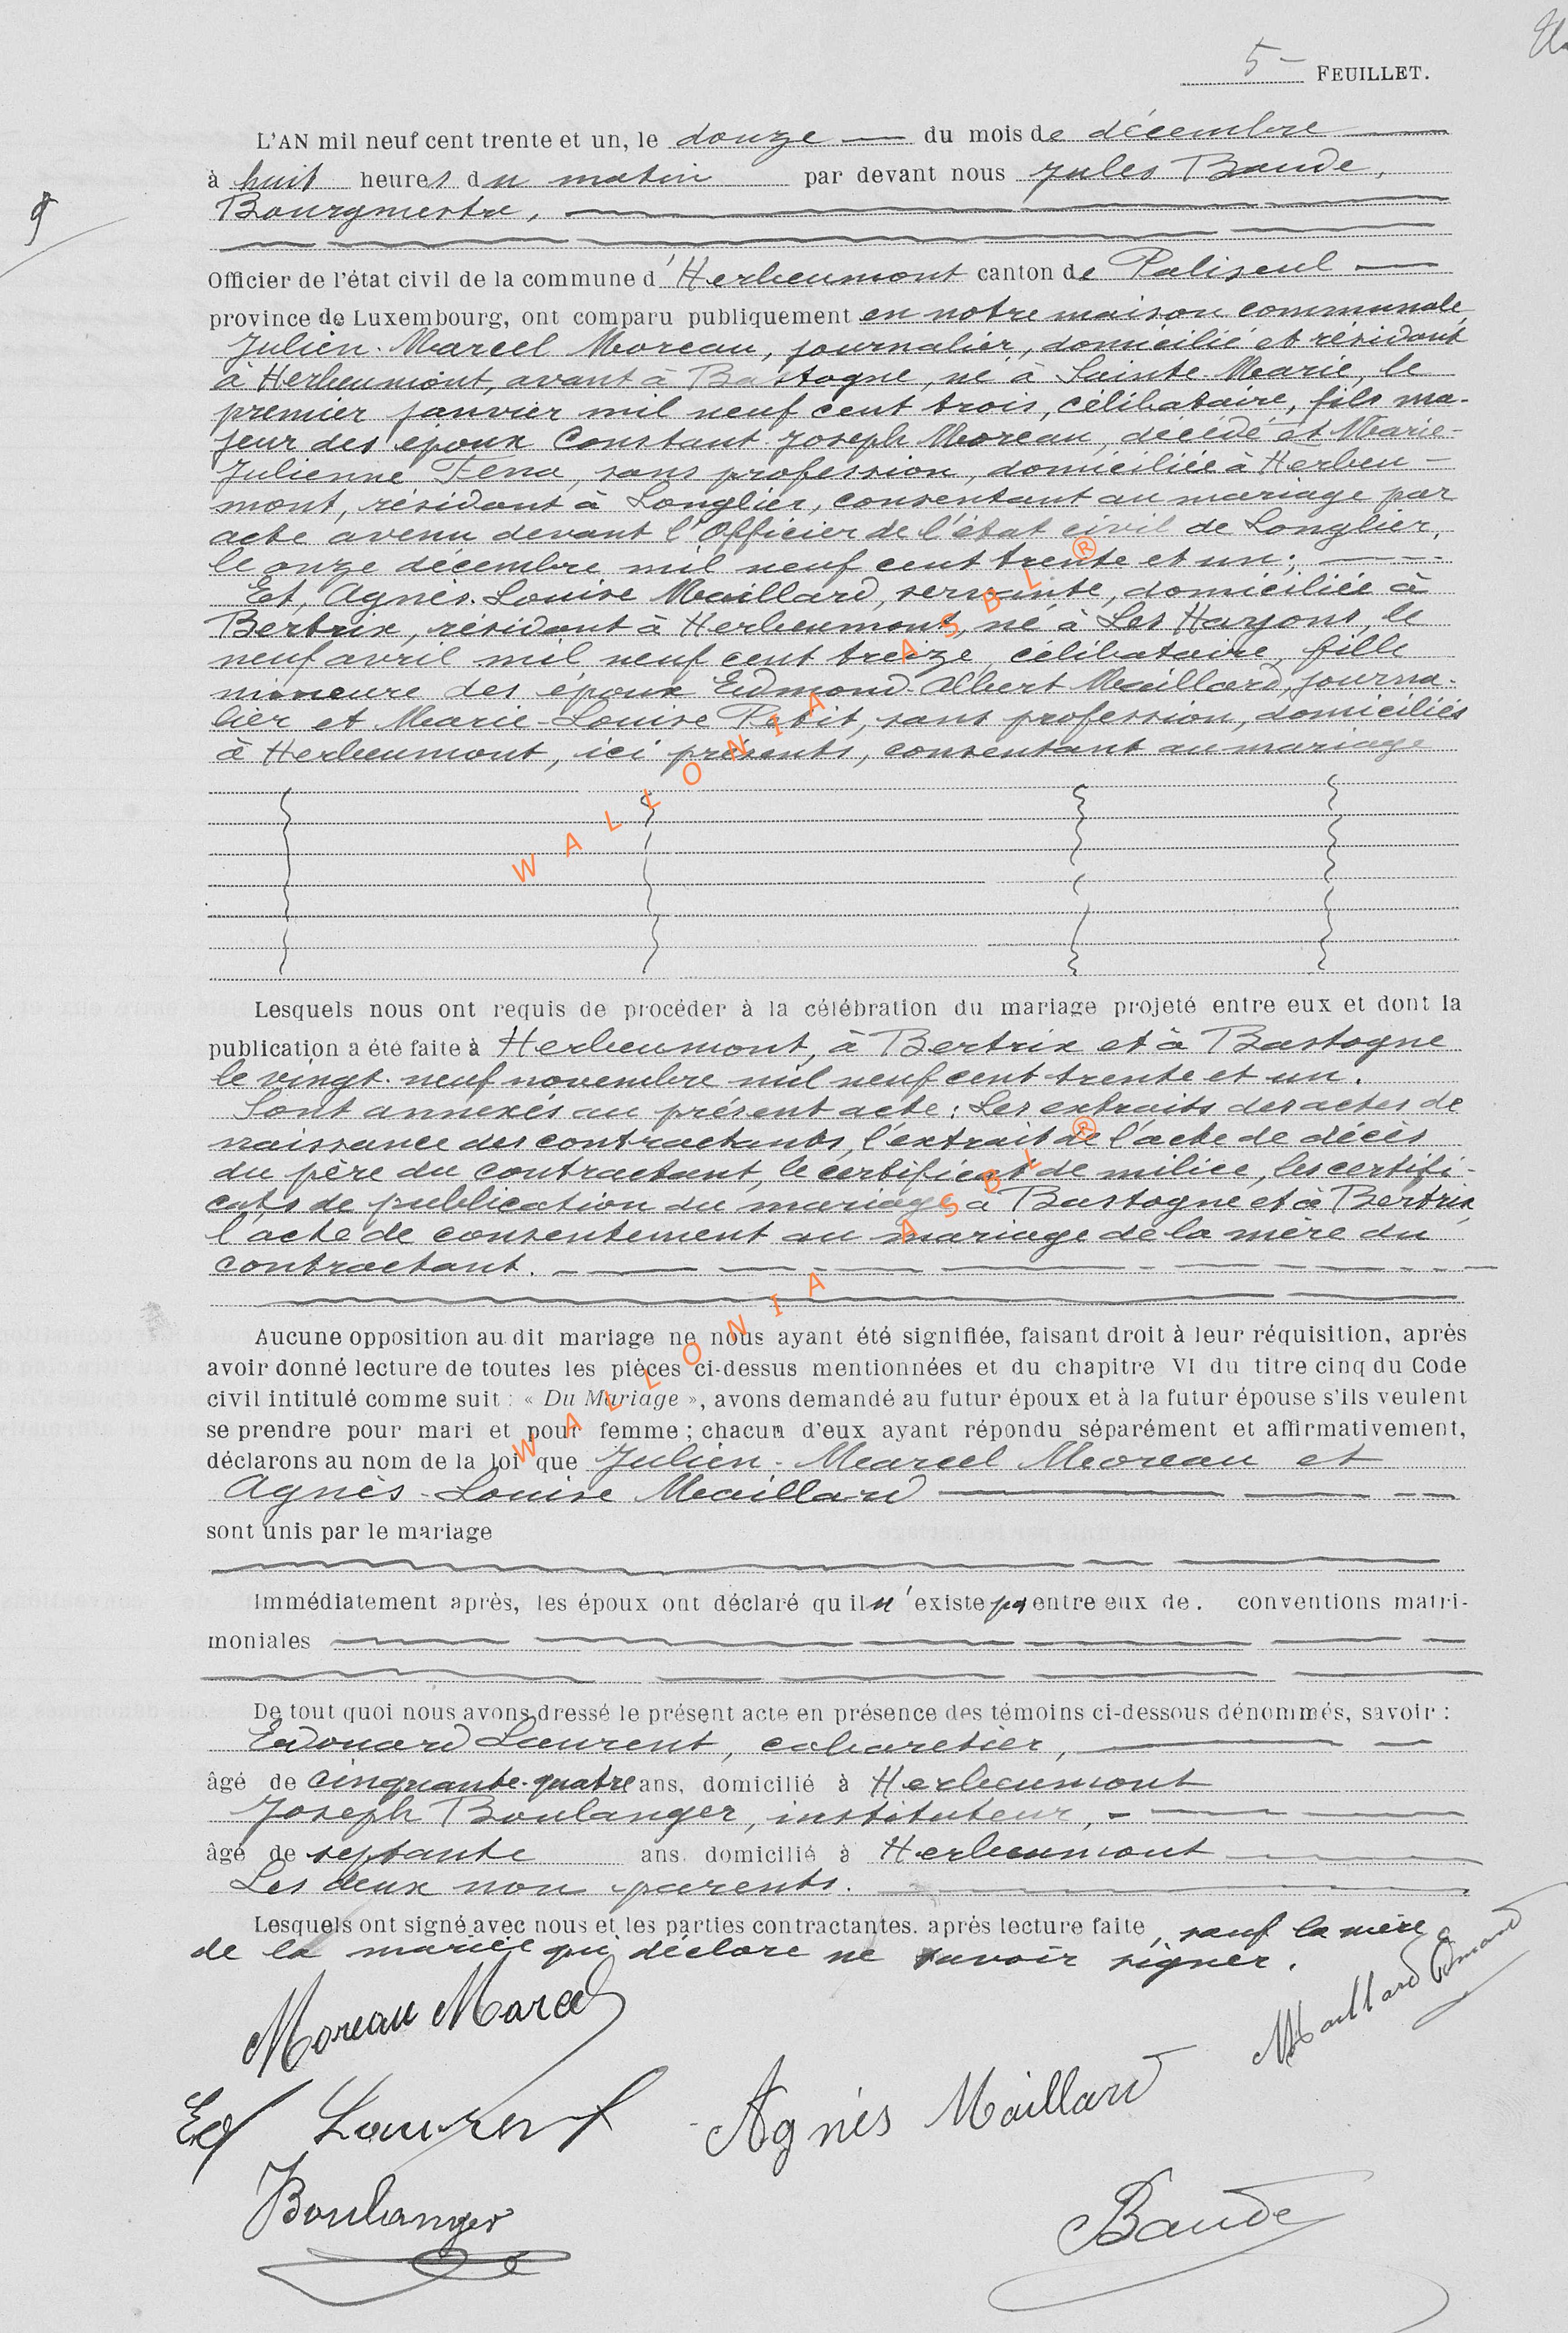 5 - FEUILLET.
L'AN mil neuf cent trente et un, le douze du mois de décembre
à huit heures du matin par devant nous Jules Baude,
Bourgmestre,
9
Officier de l'état civil de la commune d'Herbeumont canton de Paliseul
province de Luxembourg, ont comparu publiquement en notre maison communale
Julien-Marcel Moreau, journalier, domicilié et résidant
à Herbeumont, avant à Bastogne, né à Sainte-Marie, le
premier janvier mil neuf cent trois, célibataire, fils ma-
jeur des époux Constant-Joseph Moreau, décédé et Marie-
Julienne Féna, sans profession, domiciliée à Herbeu-
mont, résidant à Longlier, consentant au mariage par
acte avenu devant l'Officier de l'état civil de Longlier,
le onze décembre mil neuf cent trente et un;
Et, Agnès-Louise Maillard, servante, domiciliée à
Bertrix, résidant à Herbeumont, né à Les Hayons, le
neuf avril mil neuf cent treize, célibataire, fille
mineure des époux Edmond-Albert Maillard, journa-
lier et Marie-Louise Petit, sans profession, domiciliés
à Herbeumont, ici présents, consentant au mariage
WALLONIA ASBL ®
Lesquels nous ont requis de procéder à la célébration du mariage projeté entre eux et dont la
publication a été faite à Herbeumont, à Bertrix et à Bastogne
le vingt-neuf novembre mil neuf cent trente et un.
Sont annexés au présent acte: Les extraits des actes de
naissance des contractants, l'extrait de l'acte de décès
du père du contractant, le certificat de milice, les certifi-
cats de publication du mariage à Bastogne et à Bertrix,
l'acte de consentement au mariage de la mère du
contractant.
WALLONIA ASBL ®
Aucune opposition au dit mariage ne nous ayant été signifiée, faisant droit à leur réquisition, après
avoir donné lecture de toutes les pièces ci-dessus mentionnées et du chapitre VI du titre cinq du Code
civil intitulé comme suit : « Du Mariage », avons demandé au futur époux et à la futur épouse s'ils veulent
se prendre pour mari et pour femme ; chacun d'eux ayant répondu séparément et affirmativement,
déclarons au nom de la loi que Julien-Marcel Moreau et
Agnès-Louise Maillard
sont unis par le mariage
Immédiatement après, les époux ont déclaré qu'il n'existe pas entre eux de. conventions matri-
moniales
De tout quoi nous avons dressé le présent acte en présence des témoins ci-dessous dénommés, savoir :
Edouard Laurent, cabaretier,
âgé de cinquante-quatre ans, domicilié à Herbeumont
Joseph Boulanger, instituteur,
âgé de septante ans, domicilié à Herbeumont
Les deux non parents.
Lesquels ont signé avec nous et les parties contractantes. après lecture faite, sauf la mère
de la mariée qui déclare ne savoir signer.
Moreau Marcel
Maillard Edmond
Ed Laurent
Agnès Maillard
Boulanger
Baude